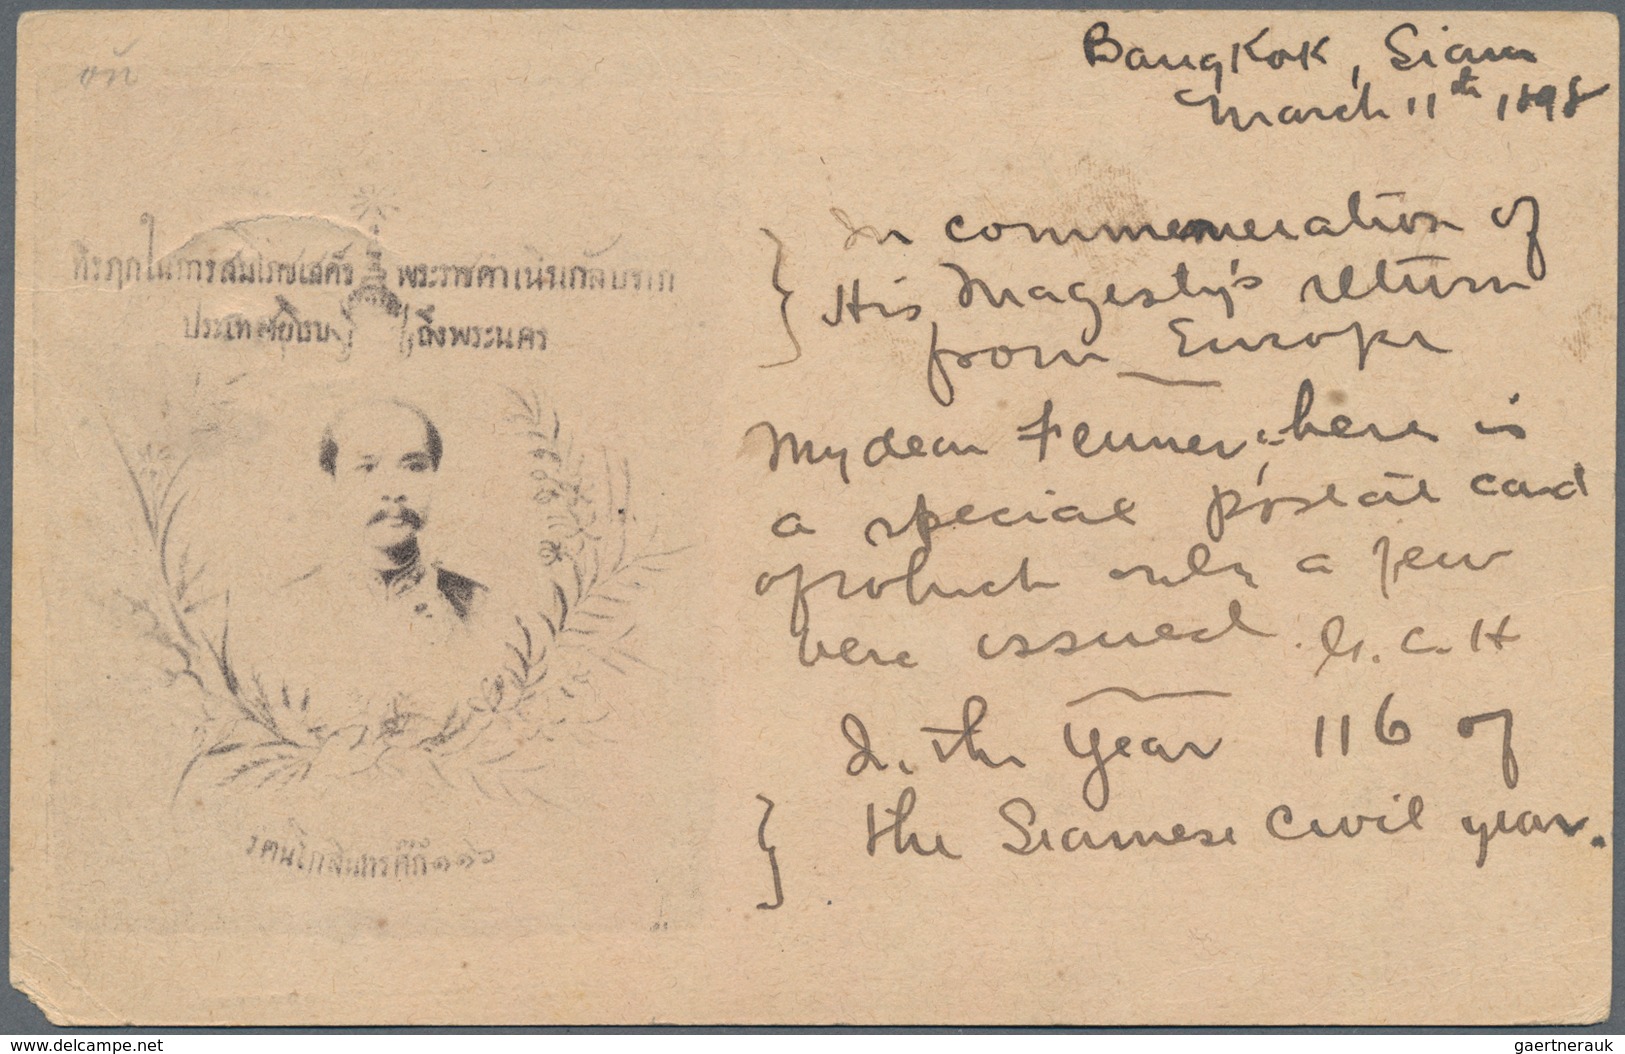 Bangkok, Siam
March 11th, 1898
ที่รฦกในการสมโภชเสด็จ พระราชดำเนินกลับจาก
ประเทศยุโรป ถึงพระนคร
In commemeration of
His Magesty's return
from Europe
My dear Fenner, here is
a special postal card
of which only a few
were issued. G.C.H
In the year 116 of
the Siamese Civil year.
รตนโกสินทรศก๊ ๑๑๖
www.delcampe.net
gaertnerauk